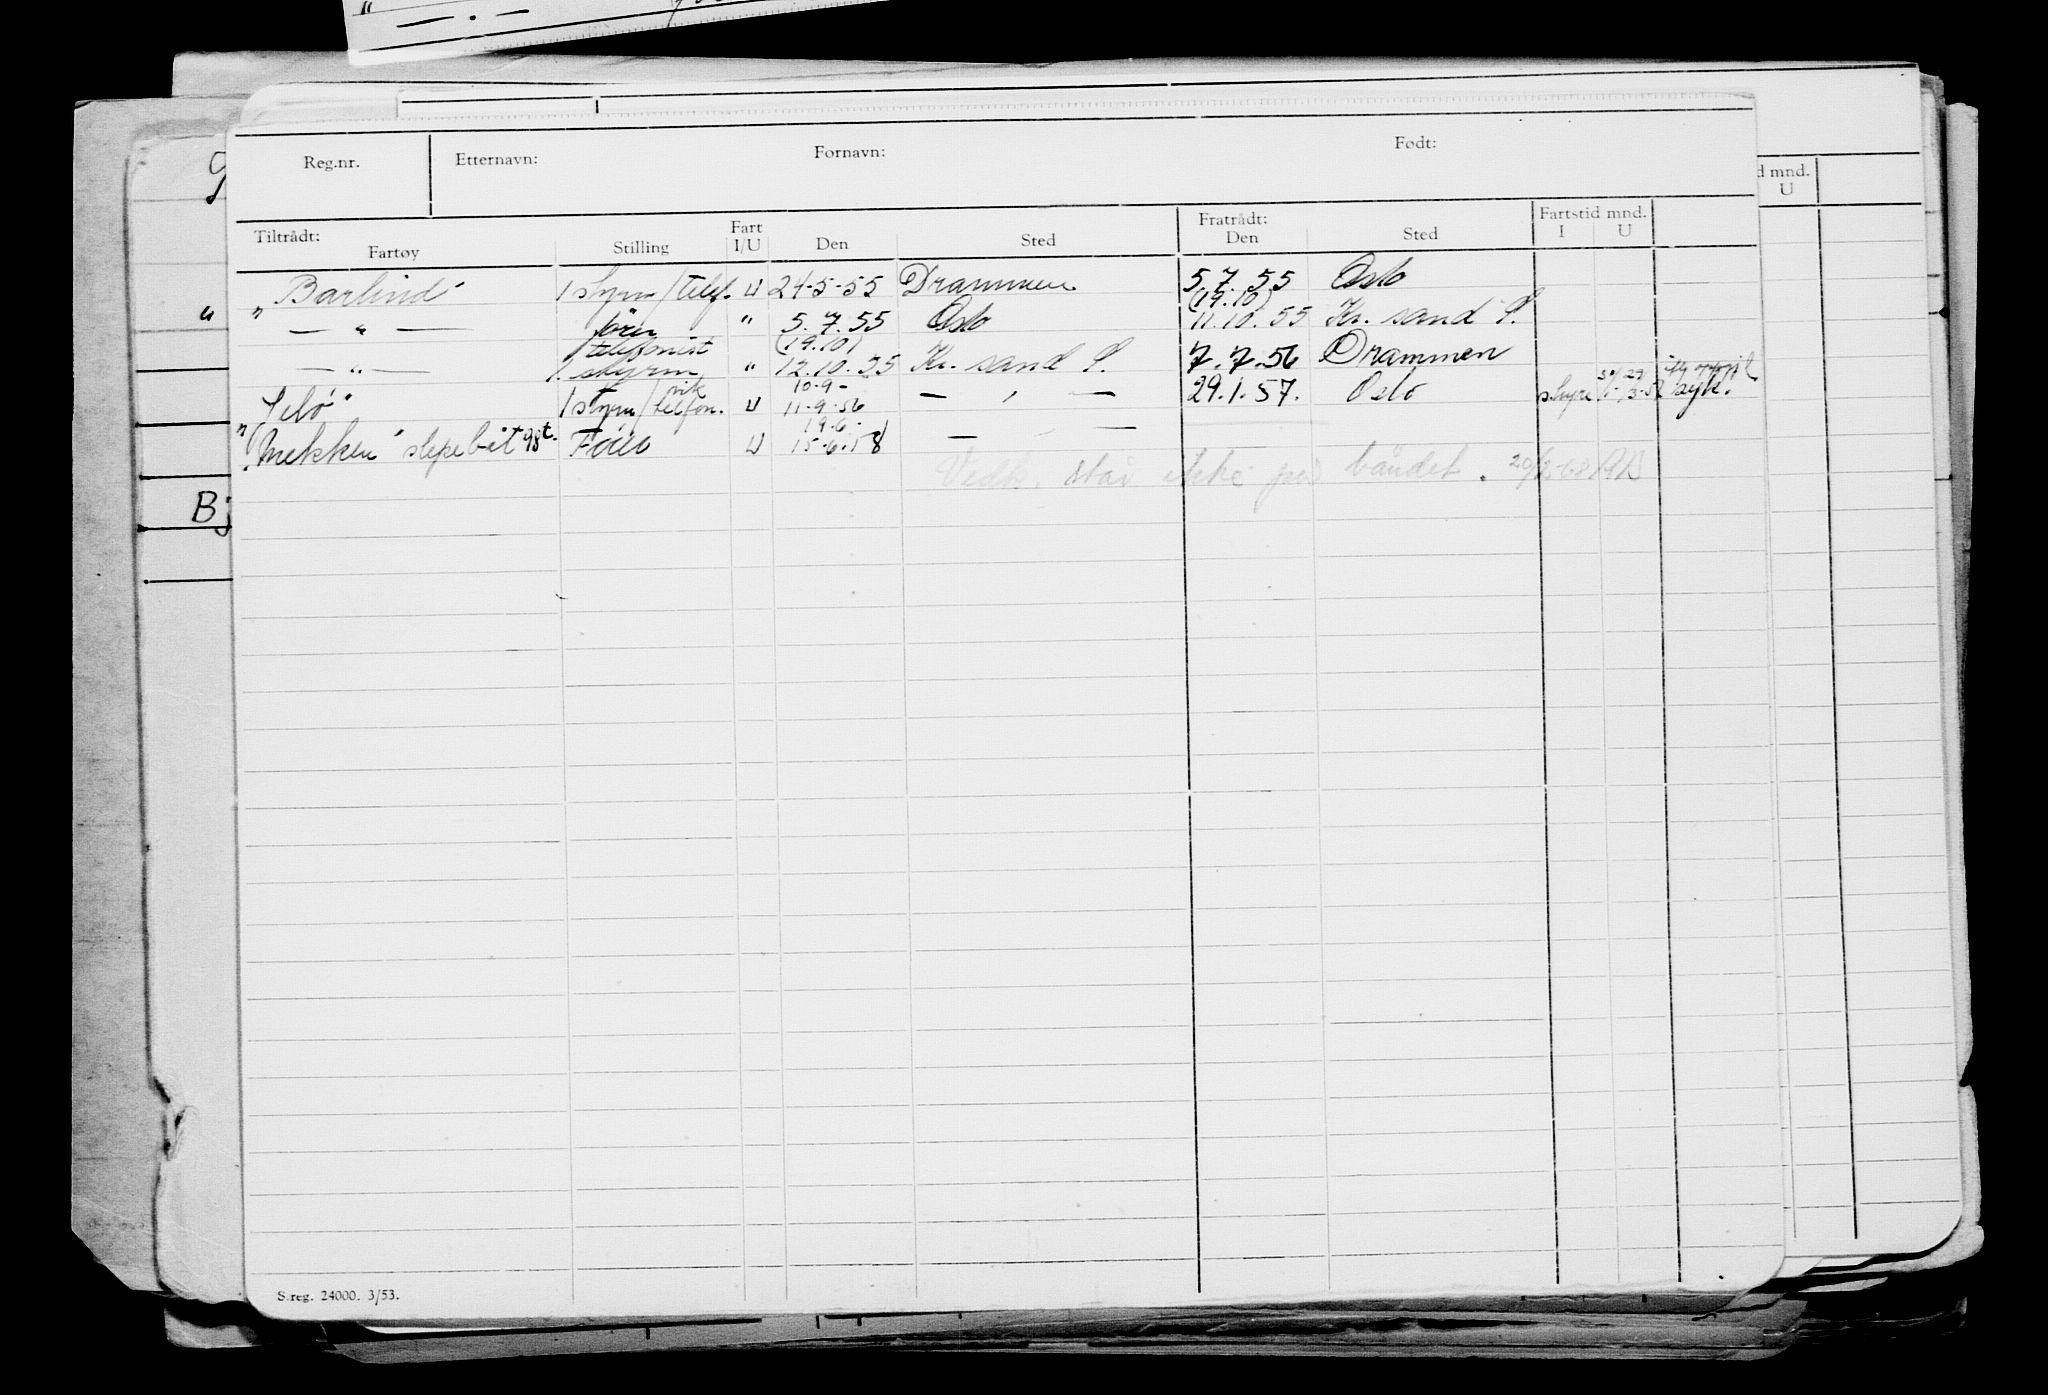 Reg.nr. Etternavn: Fornavn: Født:
d mnd.
U
Tiltrådt: Fartøy Stilling Fart I/U Den Sted Fratrådt: Den Sted Fartstid mnd. I U
" Barlind" 1 styrm/telef. U 24-5-55 Drammen 5.7.55 Oslo
(19.10)
— " — fører " 5.7.55 Oslo 11.10.55 Kr. sand S.
telefonist (19.10)
— " — 1. styrm " 12.10.55 Kr. sand S. 7.7.56 Drammen
vik 10-9-
"Jelø" 1 styrm/telefon. U 11-9-56 — " — 29.1.57. Oslo syk.
19.6.
"Mekken" slepebåt 98t. Fører U 15-6-58 — " —
Vedk. står ikke på båndet.
B
S.reg. 24000. 3/53.